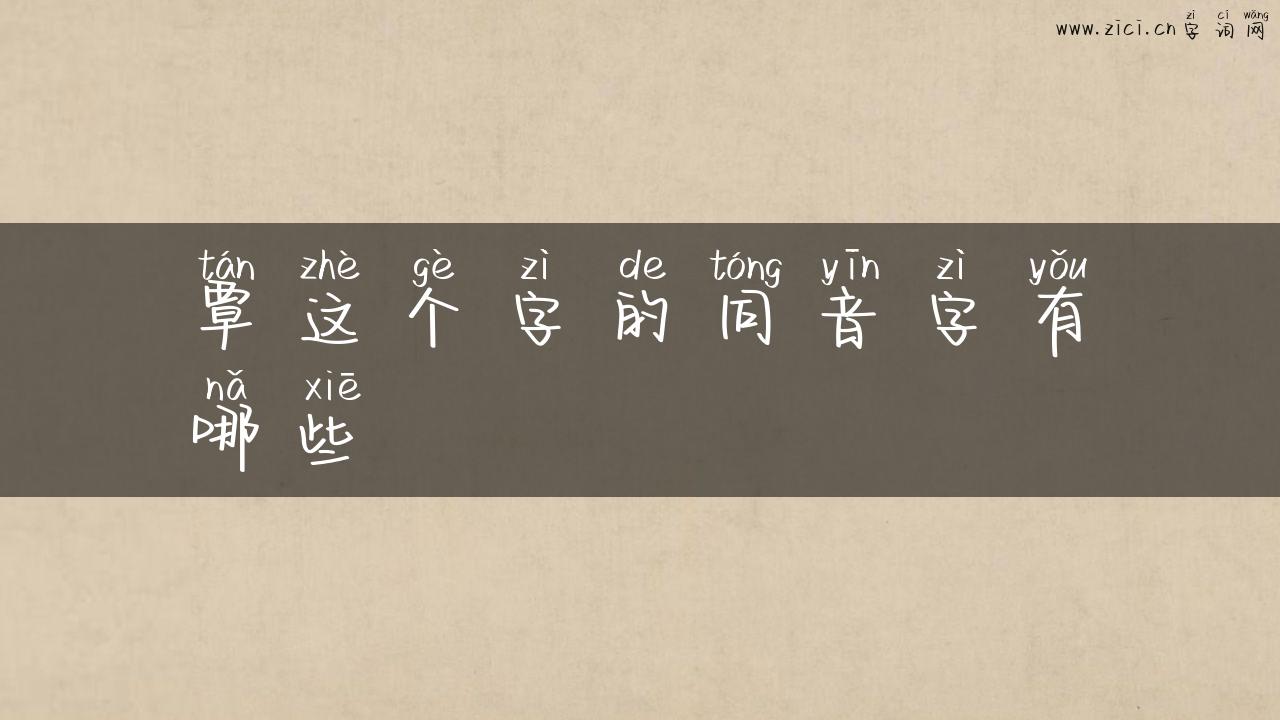 zì cí wǎng
www.zici.cn 字词网
tán zhè gè zì de tóng yīn zì yǒu
覃这个字的同音字有
nǎ xiē
哪些